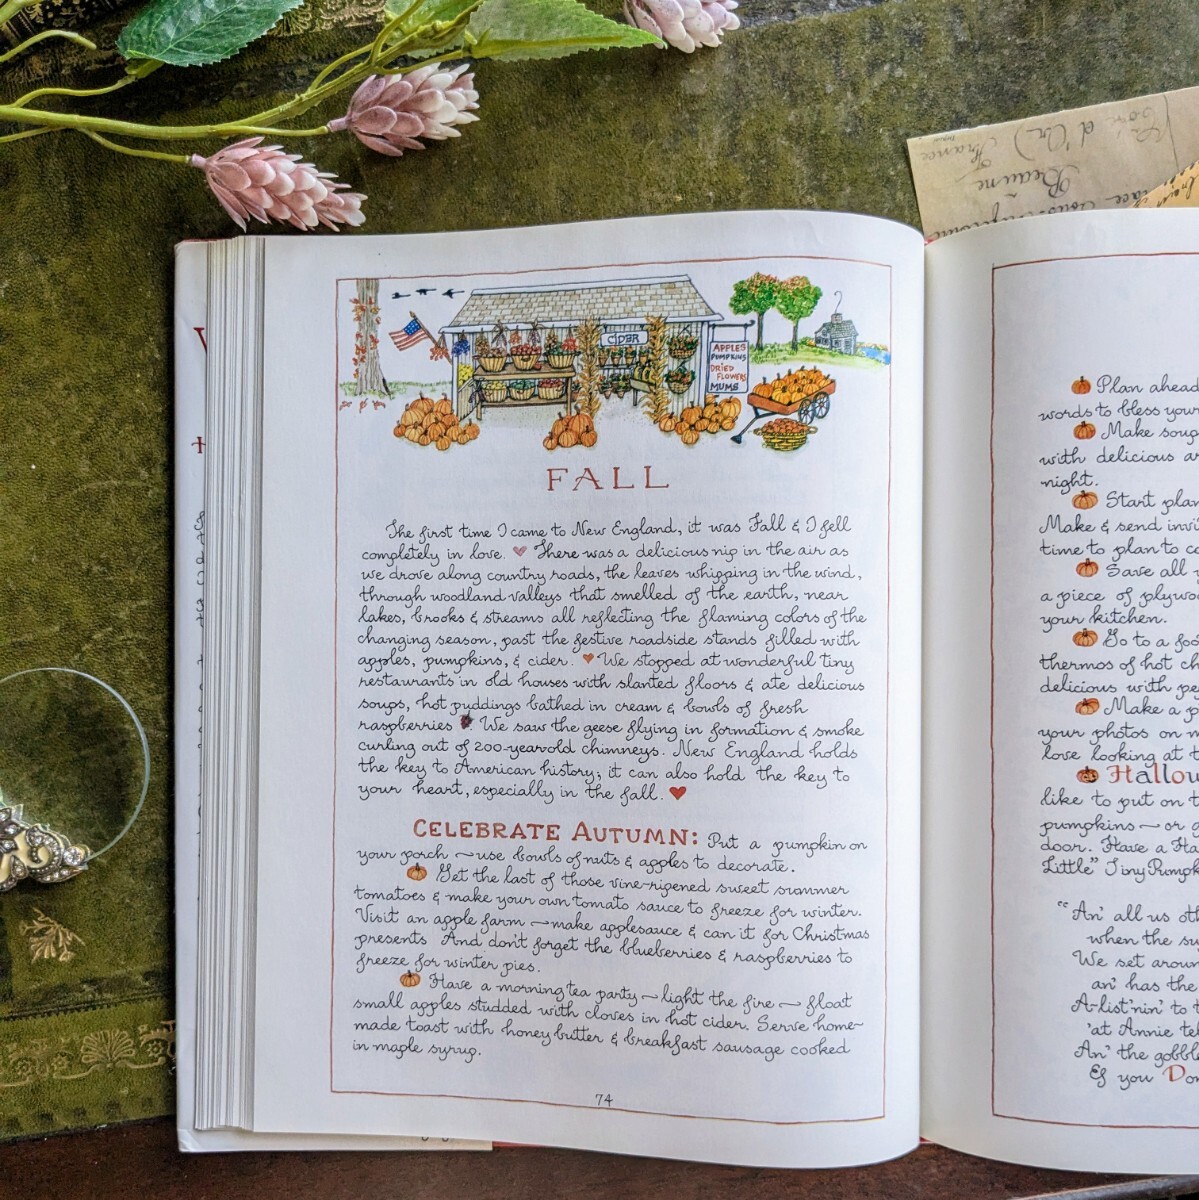 CIDER
APPLES
PUMPKINS
DRIED
FLOWERS
MUMS
FALL
The first time I came to New England, it was Fall & I fell
completely in love. There was a delicious nip in the air as
we drove along country roads, the leaves whipping in the wind,
through woodland valleys that smelled of the earth, near
lakes, brooks & streams all reflecting the flaming colors of the
changing season, past the festive roadside stands filled with
apples, pumpkins, & cider. We stopped at wonderful tiny
restaurants in old houses with slanted floors & ate delicious
soups, hot puddings bathed in cream & bowls of fresh
raspberries. We saw the geese flying in formation & smoke
curling out of 200-year-old chimneys. New England holds
the key to American history; it can also hold the key to
your heart, especially in the fall.
CELEBRATE AUTUMN: Put a pumpkin on
your porch ~ use bowls of nuts & apples to decorate.
Get the last of those vine-ripened sweet summer
tomatoes & make your own tomato sauce to freeze for winter.
Visit an apple farm ~ make applesauce & can it for Christmas
presents And don't forget the blueberries & raspberries to
freeze for winter pies.
Have a morning tea party ~ light the fire ~ float
small apples studded with cloves in hot cider. Serve home~
made toast with honey butter & breakfast sausage cooked
in maple syrup.
74
Plan ahead
words to bless your
Make soup
with delicious
night.
Start plan
Make & send invi
time to plan to co
Save all
a piece of plywo
your kitchen.
Go to a foo
thermos of hot ch
delicious with pe
Make a p
your photos on
love looking at t
Hallow
like to put on t
pumpkins ~ or g
door. Have a Ha
Little" Tiny Pumpk
"An' all us oth
when the su
We set aroun
an' has the
A-list'nin' to
'at Annie tel
An' the gobble
Ef you Don
(Côte d'Or)
France
Beaune